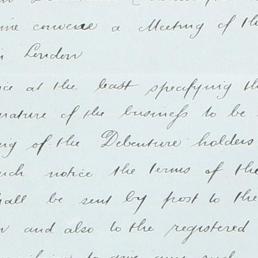 time convene a Meeting of the
in London
at the least specifying the
nature of the business to be
of the Debenture holders
such notice the terms of the
shall be sent by post to the
and also to the registered